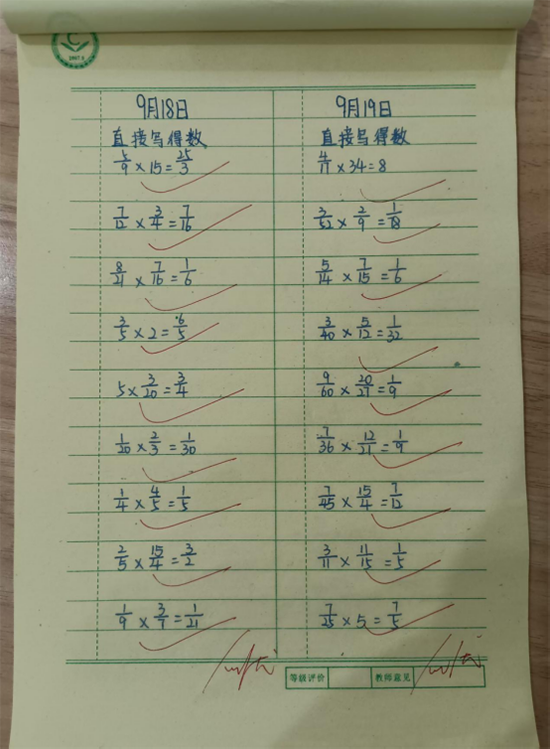 9月18日
直接写得数
5/9 × 15 = 25/3
7/12 × 3/4 = 7/16
8/21 × 7/16 = 1/6
3/5 × 2 = 6/5
5 × 3/20 = 3/4
1/20 × 2/3 = 1/30
1/4 × 4/5 = 1/5
2/5 × 15/4 = 3/2
1/9 × 3/7 = 1/21
9月19日
直接写得数
4/17 × 34 = 8
× 2/9 = 1/18
5/14 × 7/15 = 1/6
3/40 × 5/12 = 1/32
9/60 × 20/27 = 1/9
7/36 × 12/21 = 1/9
7/45 × 15/4 = 7/12
3/11 × 11/15 = 1/5
7/25 × 5 = 7/5
等级评价
教师意见